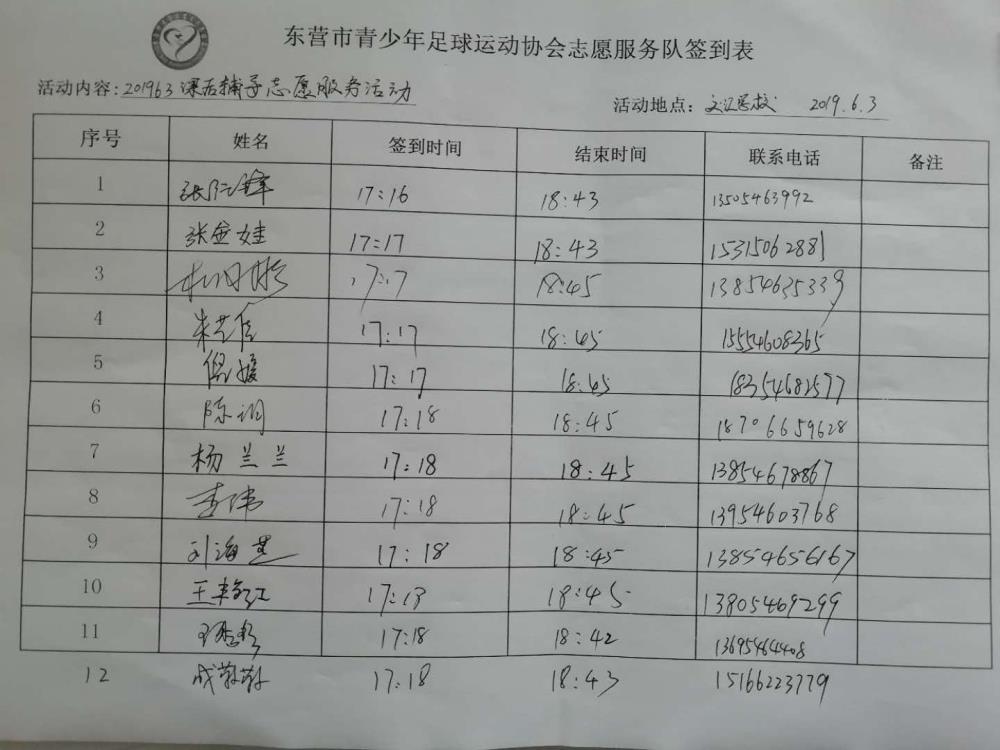 东营市青少年足球运动协会志愿服务队签到表
活动内容: 201963 课后辅导志愿服务活动
活动地点: 文汇学校 2019.6.3
序号 姓名 签到时间 结束时间 联系电话 备注
1 17:16 18:43 13505463992
2 张金娃 17:17 18:43 15315062881
3 17:17 18:45 13854635339
4 17:17 18:45 15554608365
5 倪媛 17:17 18:45 18354682577
6 陈润 17:18 18:45 18706659628
7 杨兰兰 17:18 18:45 13854678867
8 李伟 17:18 18:45 13954603768
9 刘海 17:18 18:45 13854656167
10 王艳红 17:18 18:45 13805469299
11 17:18 18:42 13695464408
12 成敬敬 17:18 18:43 15166223779